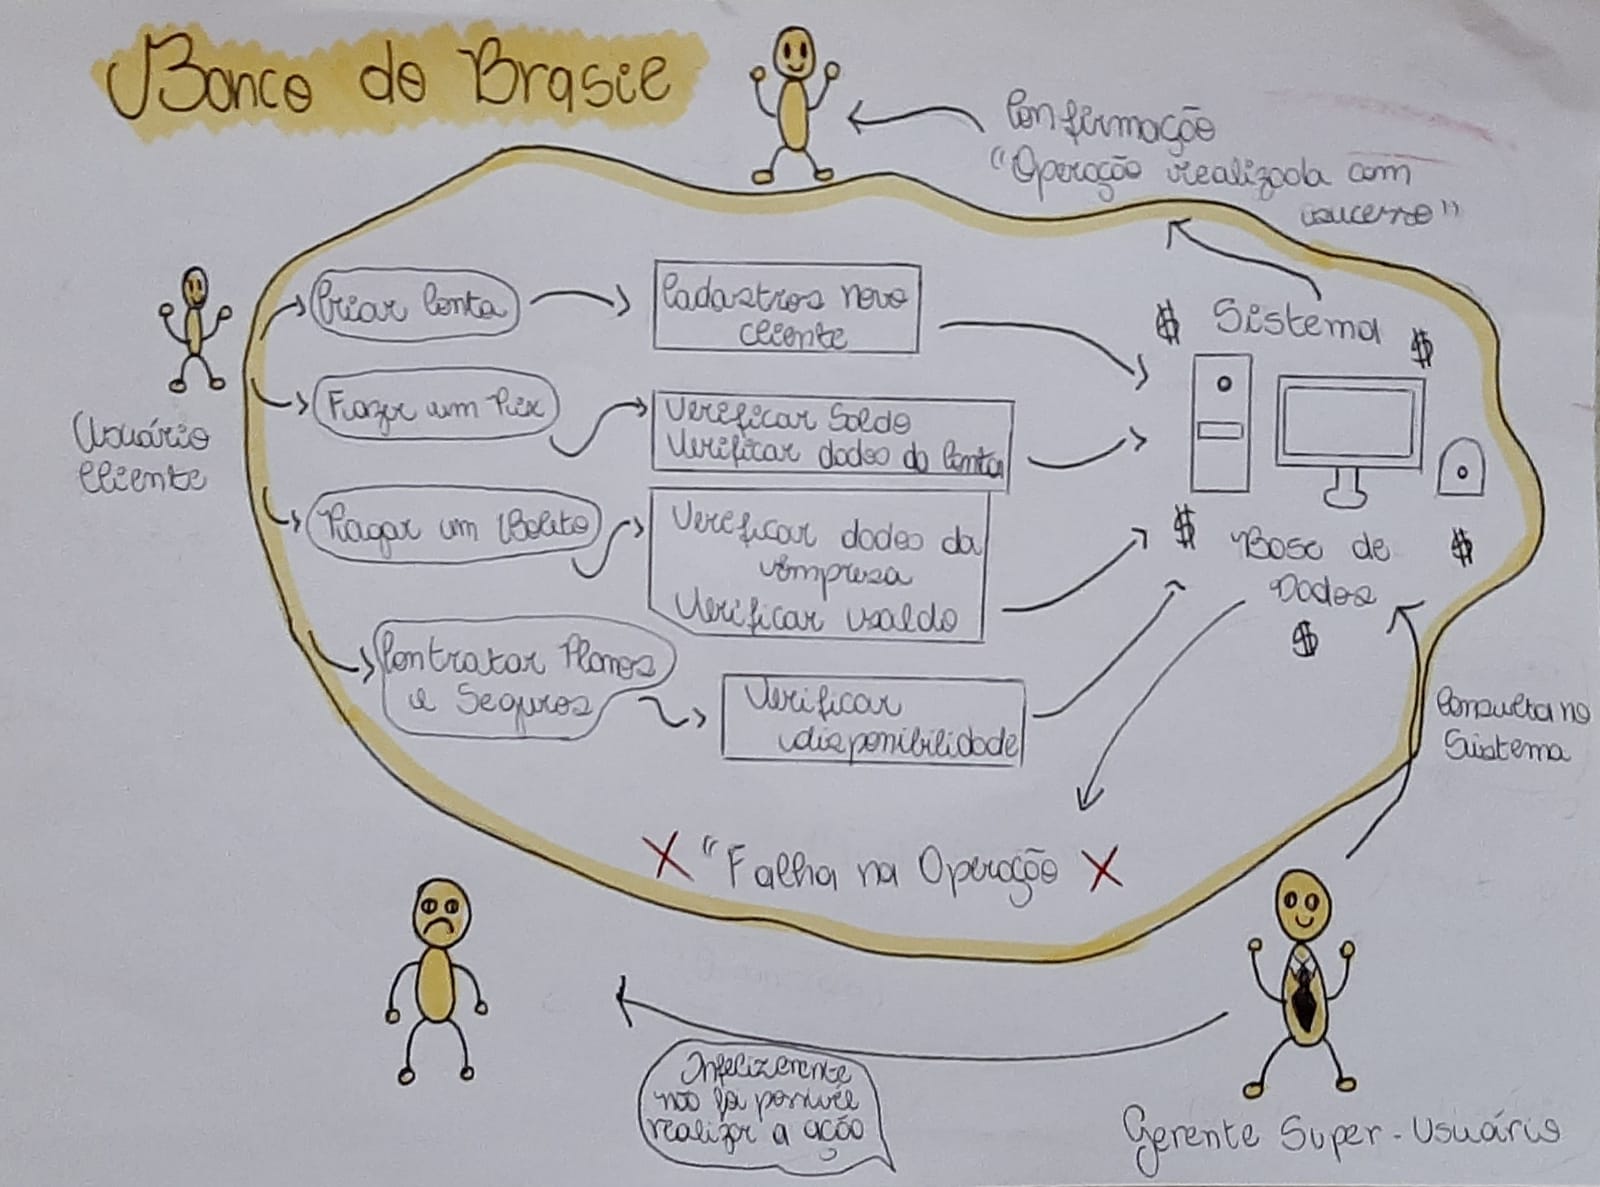 Banco do Brasil
Confirmação
"Operação realizada com
sucesso"
Usuário
Cliente
Criar Conta
Cadastros novo
cliente
Fazer um Pix
Verificar Saldo
Verificar dados da Conta
Pagar um Boleto
Verificar dados da
empresa
Verificar saldo
Contratar Planos
e Seguros
Verificar
disponibilidade
$ Sistema $
$ Base de $
Dados
$
Consulta no
Sistema
X "Falha na Operação X
Infelizmente
não foi possível
realizar a ação
Gerente Super-Usuário